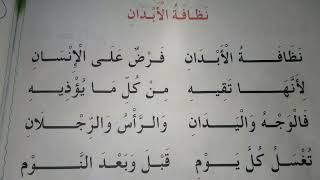 نَظَافَةُ الْأَبْدَانِ
نَظَافَةُ الْأَبْدَانِ فَرْضٌ عَلَى الْإِنْسَانِ
لِأَنَّهَا تَقِيهِ مِنْ كُلِّ مَا يُؤْذِيهِ
فَالْوَجْهُ وَالْيَدَانِ وَالرَّأْسُ وَالرِّجْلَانِ
تُغْسَلُ كُلَّ يَوْمٍ قَبْلَ وَبَعْدَ النَّوْمِ